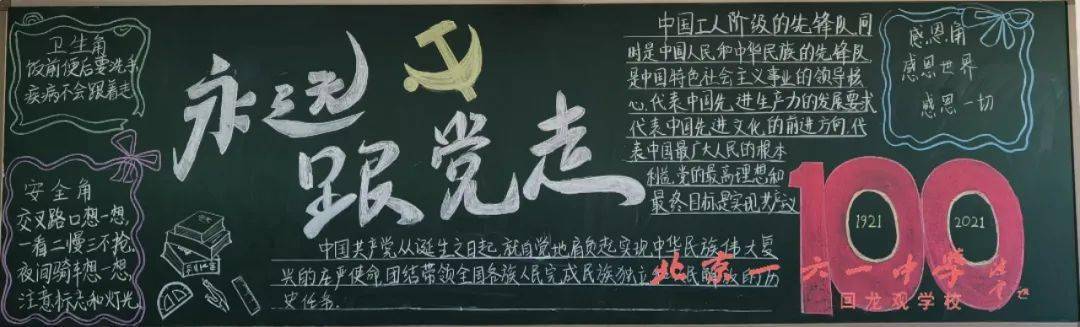 卫生角
饭前便后要洗手
疾病不会跟着走
安全角
交叉路口想一想,
一看二慢三不抢,
夜间骑车想一想,
注意标志和灯光
永远
跟党走
中国工人阶级的先锋队同
时是中国人民和中华民族的先锋队
是中国特色社会主义事业的领导核
心,代表中国先进生产力的发展要求
代表中国先进文化的前进方向,代
表中国最广大人民的根本
利益,党的最高理想和
最终目标是实现共产主义
感恩角
感恩世界
感恩一切
100
1921
2021
中国共产党从诞生之日起就自觉地肩负起实现中华民族伟大复
兴的庄严使命,团结带领全国各族人民完成民族独立 民解放的历
史任务.
北京一六一中学
回龙观学校